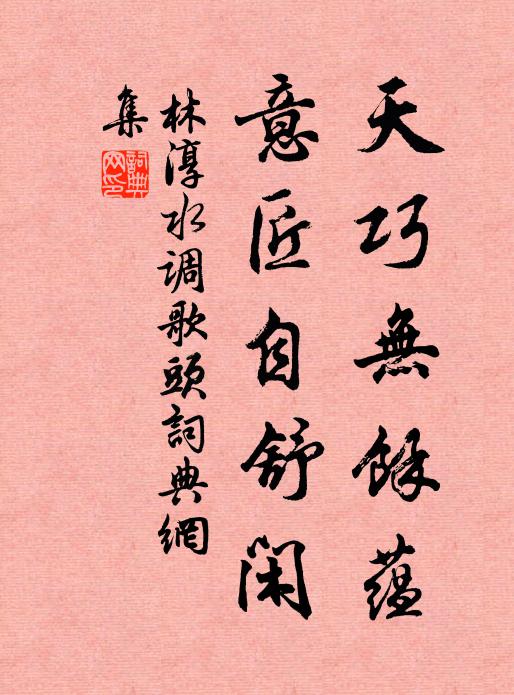 天巧無餘蘊
意匠自舒閑
林淳水调歌頭詞典網
集
詞典网印